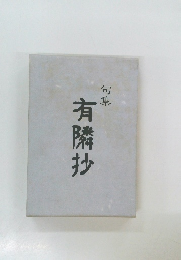 句集
有隣抄